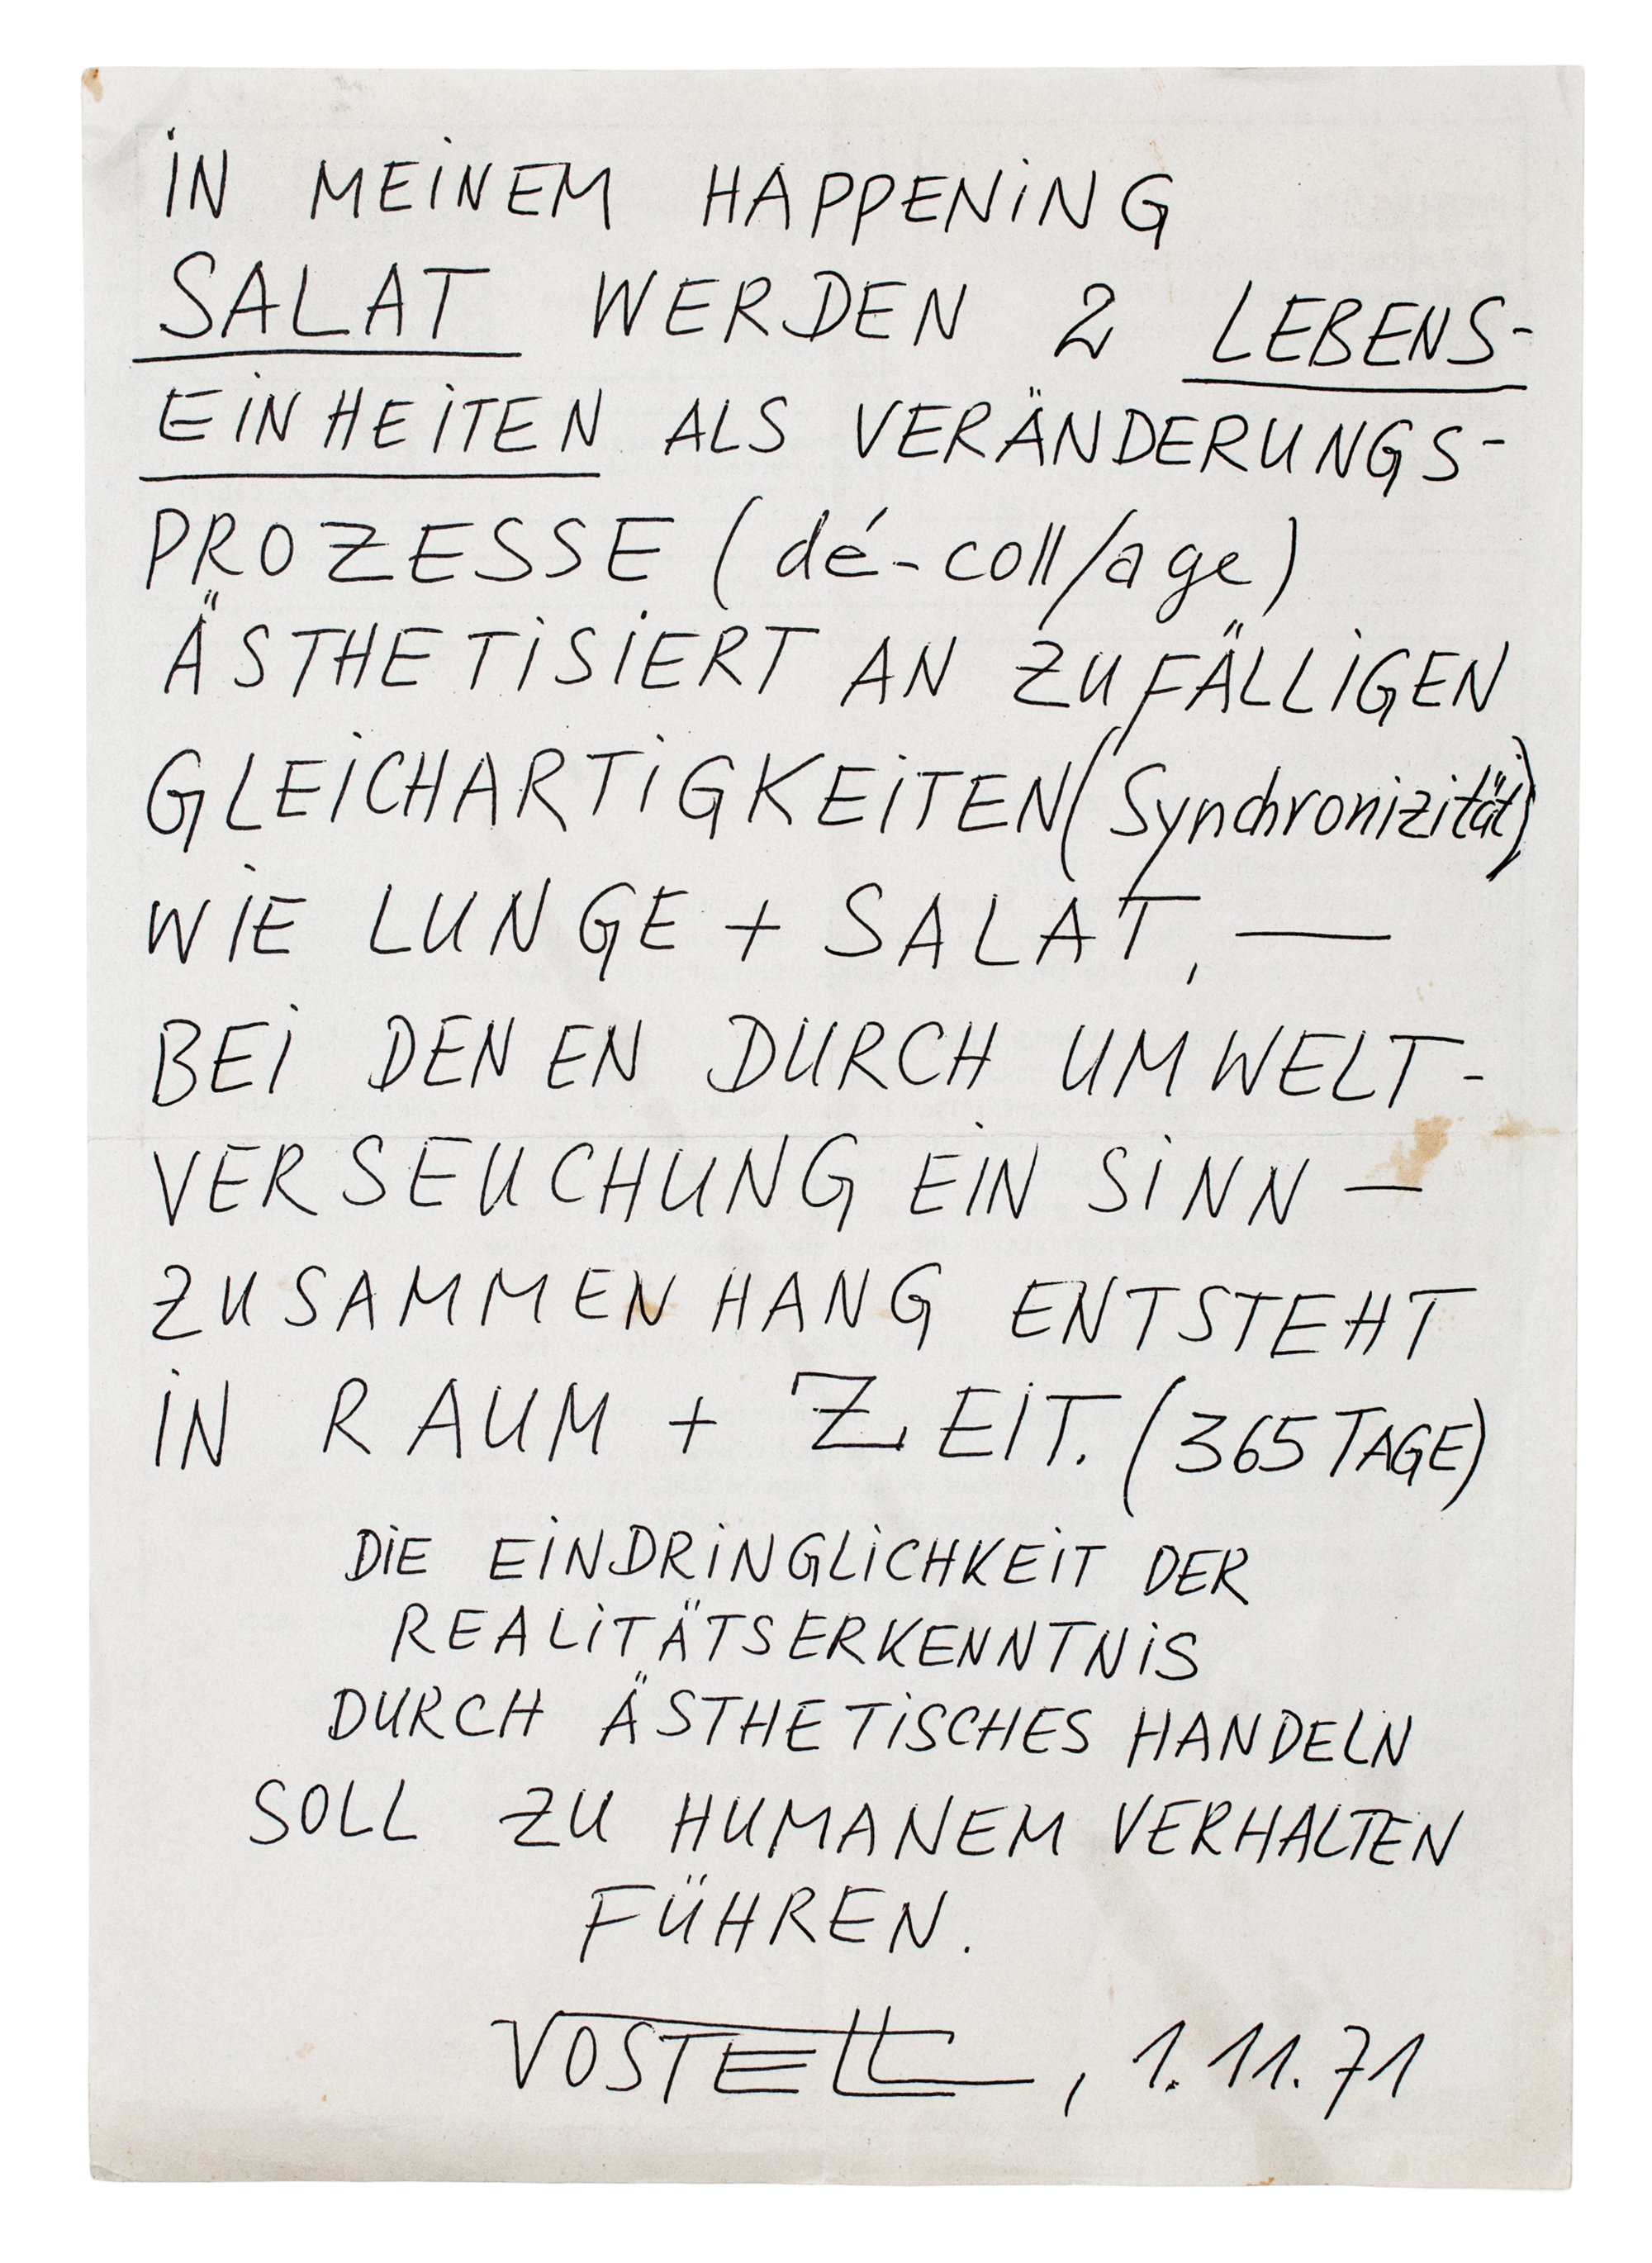 IN MEINEM HAPPENING
SALAT WERDEN 2 LEBENS-
EINHEITEN ALS VERÄNDERUNGS-
PROZESSE (dé-coll/age)
ÄSTHETISIERT AN ZUFÄLLIGEN
GLEICHARTIGKEITEN (Synchronizität)
WIE LUNGE + SALAT, —
BEI DENEN DURCH UMWELT-
VERSEUCHUNG EIN SINN —
ZUSAMMENHANG ENTSTEHT
IN RAUM + ZEIT. (365 TAGE)
DIE EINDRINGLICHKEIT DER
REALITÄTSERKENNTNIS
DURCH ÄSTHETISCHES HANDELN
SOLL ZU HUMANEM VERHALTEN
FÜHREN.
VOSTELL, 1.11.71